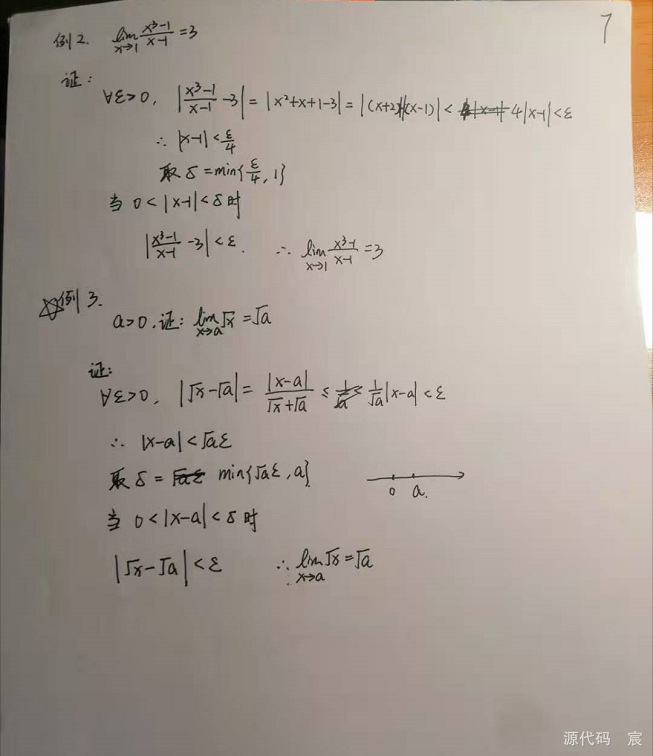 7
例2. lim_{x→1} (x³-1)/(x-1) = 3
证:
∀ε>0, |(x³-1)/(x-1) - 3| = |x²+x+1-3| = |(x+2)(x-1)| < 4|x-1| < ε
∴ |x-1| < ε/4
取 δ = min{ε/4, 1}
当 0<|x-1|<δ时
|(x³-1)/(x-1) - 3| < ε. ∴ lim_{x→1} (x³-1)/(x-1) = 3
☆例3.
a>0. 证: lim_{x→a} √x = √a
证:
∀ε>0, |√x-√a| = |x-a|/(√x+√a) ≤ 1/√a |x-a| < ε
∴ |x-a| < √aε
取 δ = min{√aε, a}
0 a.
当 0<|x-a|<δ时
|√x-√a| < ε ∴ lim_{x→a} √x = √a
源代码 宸